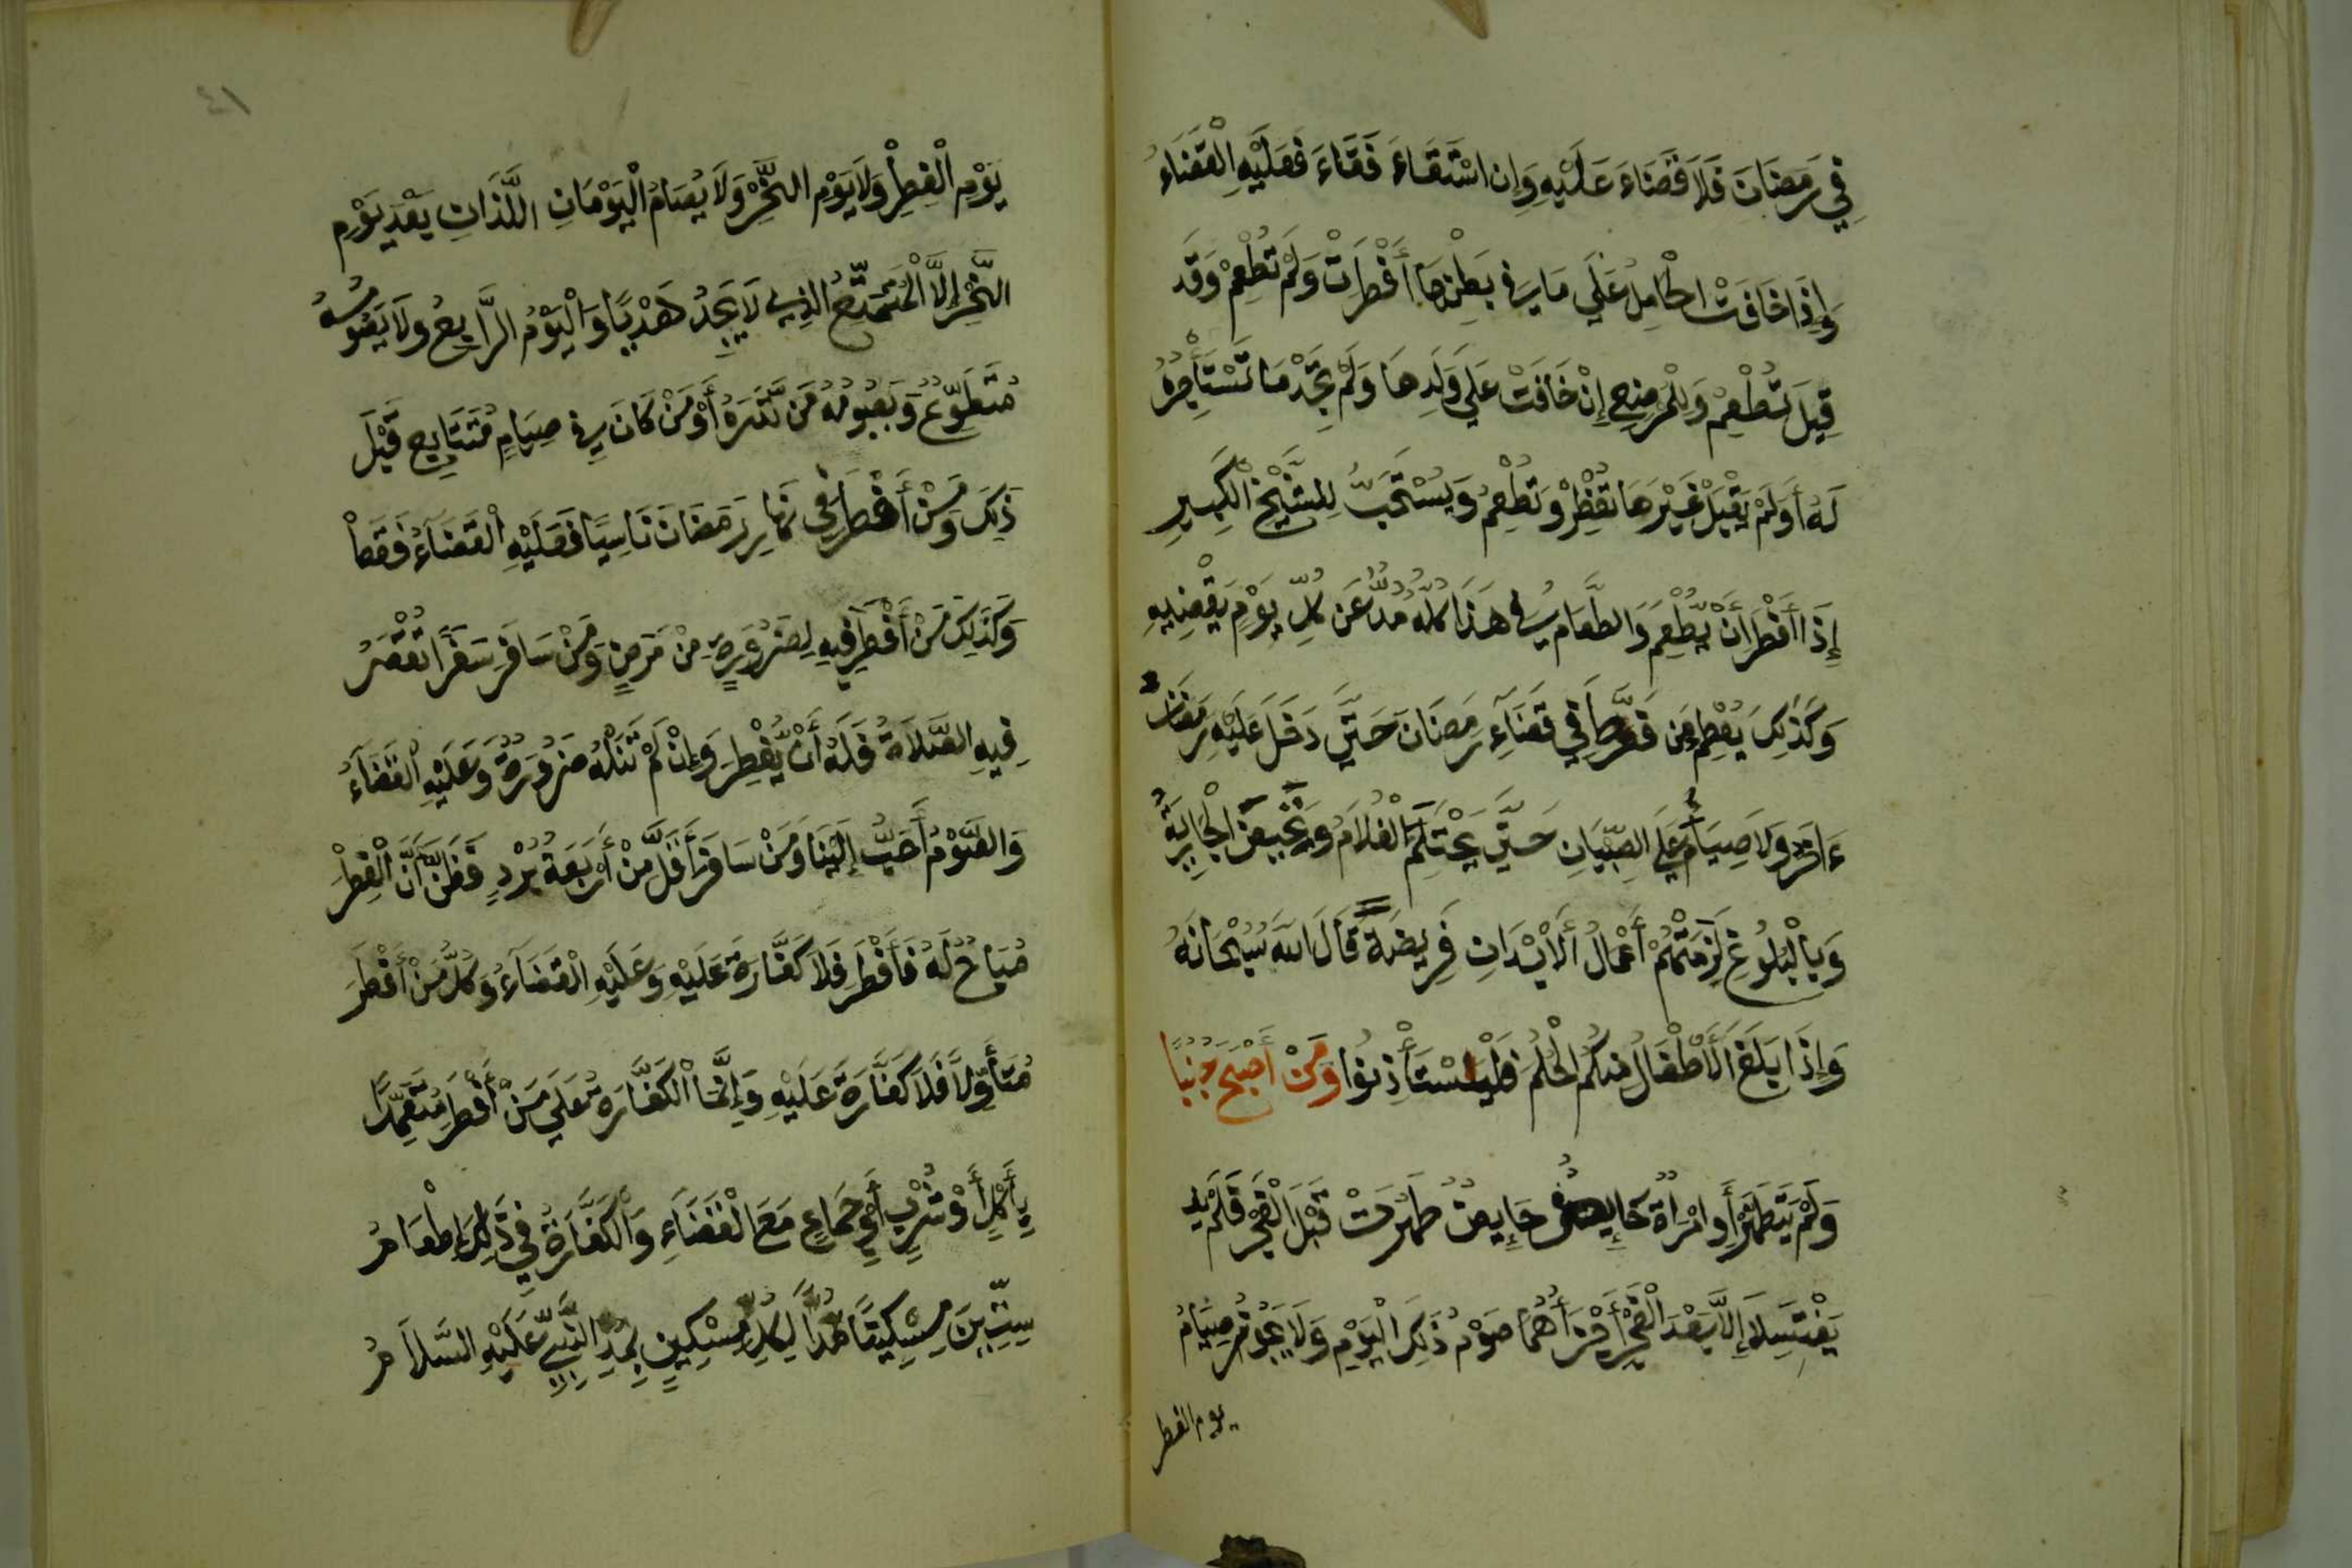 فِي رَمَضَانَ فَلَا قَضَاءَ عَلَيْهِ وَإِنِ اسْتَقَاءَ فَقَاءَ فَعَلَيْهِ الْقَضَاءُ
وَإِذَا خَافَتْ الْحَامِلُ عَلَي مَا فِي بَطْنِهَا أَفْطَرَتْ وَلَمْ تُطْعِمْ وَقَد
قِيلَ تُطْعِمْ وَلِلْمُرْضِعِ إِنْ خَافَتْ عَلَي وَلَدِهَا وَلَمْ تَجِدْ مَا تَسْتَأْجِرُ
لَهُ أَوْ لَمْ يَقْبَلْ غَيْرَهَا تُفْطِرْ وَتُطْعِمُ وَيُسْتَحَبُّ لِلشَّيْخِ الْكَبِيرِ
إِذَا أَفْطَرَ أَنْ يُّطْعِمَ وَالطَّعَامُ فِي هَذَا كُلِّهِ مُدٌّ عَن كُلِّ يَوْمٍ يَقْضِيهِ
وَكَذَلِكَ يُطْعِمُ مَن فَرَّطَ فِي قَضَاءِ رَمَضَانَ حَتَّي دَخَلَ عَلَيْهِ رَمَضَانُ
ءَاخَرُ وَلَا صِيَامَ عَلَي الصِّبْيَانِ حَتَّي يَحْتَلِمَ الْغُلَامُ وَتَحِيضَ الْجَارِيَةُ
وَبِالْبُلُوغِ لَزِمَتْهُمْ أَعْمَالُ الْأَبْدَانِ فَرِيضَةً قَالَ اللَّه سُبْحَانَهُ
وَإِذَا بَلَغَ الْأَطْفَالُ مِنكُم الْحُلُمَ فَلْيَسْتَأْذِنُوا وَمَنْ أَصْبَحَ جُنُبًا
وَلَمْ يَتَطَهَّرْ أَوِ امْرَأَةٌ حَائِضٌ حَائِضٌ طَهُرَتْ قَبْلَ الْفَجْرِ فَلَمْ
يَغْتَسِلَا إِلَّا بَعْدَ الْفَجْرِ أَجْزَأَهُمَا صَوْمُ ذَلِكَ الْيَوْمِ وَلَا يَجُوزُ صِيَامُ
يوم الفطر
٤١
يَوْمِ الْفِطْرِ وَلَا يَوْمِ النَّحْرِ وَلَا يُصَامُ الْيَوْمَانِ اللَّذَانِ بَعْدَ يَوْمِ
النَّحْرِ إِلَّا الْمُتَمَتِّعُ الذِي لَا يَجِدُ هَدْيًا وَالْيَوْمُ الرَّابِعُ وَلَا يَصُومُهُ
مُتَطَوِّعٌ وَيَصُومُهُ مَن نَّذَرَهُ أَوْ مَنْ كَانَ فِي صِيَامٍ مُتَتَابِعٍ قَبْلَ
ذَلِكَ وَمَنْ أَفْطَرَ فِي نَهَارِ رَمَضَانَ نَاسِيًا فَعَلَيْهِ الْقَضَاءُ فَقَطْ
وَكَذَلِكَ مَنْ أَفْطَرَ فِيهِ لِضَرُورَةٍ مِنْ مَرَضٍ وَمَنْ سَافَرَ سَفَرًا تُقْصَرُ
فِيهِ الصَّلَاةُ فَلَهُ أَنْ يُّفْطِرَ وَإِنْ لَمْ تَنَلْهُ ضَرُورَةٌ وَعَلَيْهِ الْقَضَاءُ
وَالصَّوْمُ أَحَبُّ إِلَيْنَا وَمَنْ سَافَرَ أَقَلَّ مِنْ أَرْبَعَةِ بُرُدٍ فَظَنَّ أَنَّ الْفِطْرَ
مُبَاحٌ لَهُ فَأَفْطَرَ فَلَا كَفَّارَةَ عَلَيْهِ وَعَلَيْهِ الْقَضَاءُ وَكُلُّ مَنْ أَفْطَرَ
مُتَأَوِّلًا فَلَا كَفَّارَةَ عَلَيْهِ وَإِنَّمَا الْكَفَّارَةُ عَلَي مَنْ أَفْطَرَ مُتَعَمِّدًا
بِأَكْلٍ أَوْ شُرْبٍ أَوْ جِمَاعٍ مَعَ الْقَضَاءِ وَالْكَفَّارَةُ فِي ذَلِكَ إِطْعَامُ
سِتِّينَ مِسْكِينًا مُدًّا لِكُلِّ مِسْكِينٍ بِمُدِّ النَّبِيِّ عَلَيْهِ السَّلَامُ